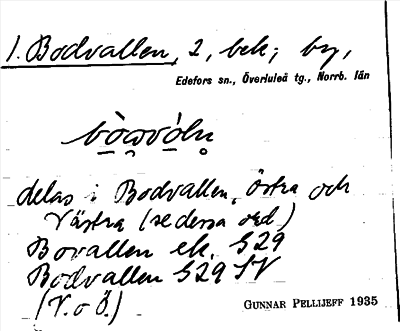 1. Bodvallen, 2, bek; by,
Edefors sn., Överluleå tg., Norrb. län
delas i Bodvallen, östra och
Västra (se dessa ord)
Bovallen ek. S29
Bodvallen S29 SV
(V. o Ö.)
GUNNAR PELLIJEFF 1935